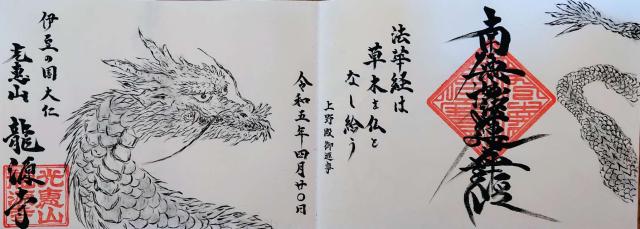 南無妙法蓮華経
法華経は
草木を仏と
なし給う
上野殿御返事
令和五年四月廿〇日
伊豆の国大仁
光恵山 龍源寺
光恵山